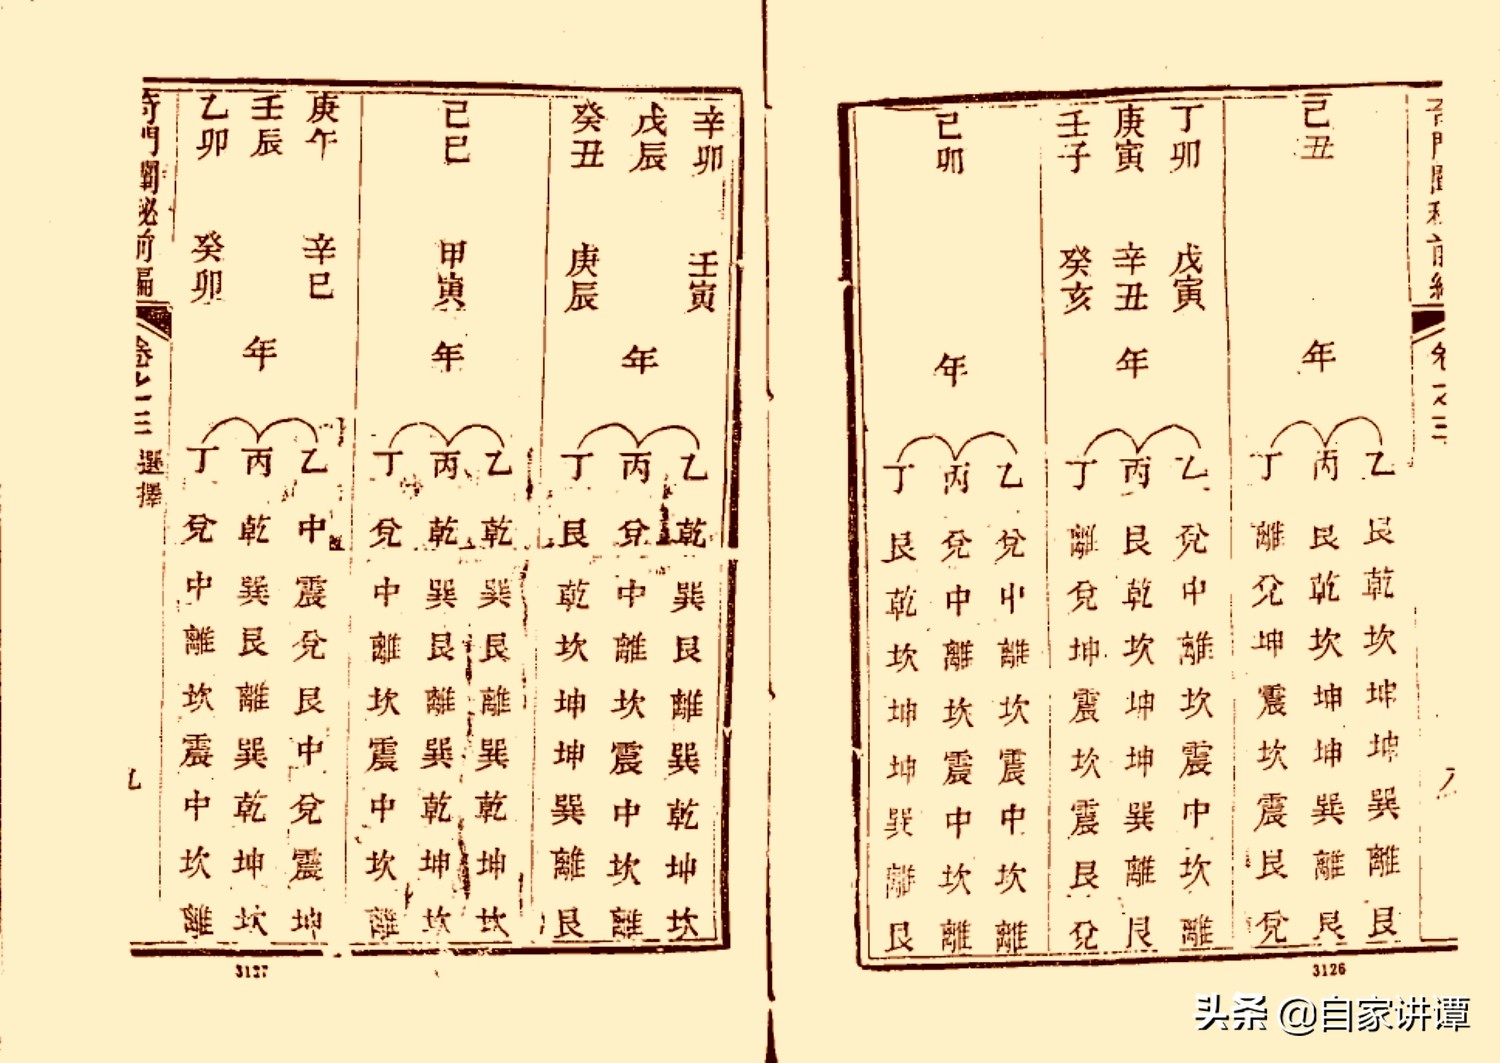 奇門闡秘前編 卷之三
己丑
年
乙艮乾坎坤坤巽離艮
丙艮乾坎坤坤巽離艮
丁離兌坤震坎震艮兌
丁卯 戊寅
庚寅 辛丑
壬子 癸亥
年
乙兌中離坎震中坎離
丙艮乾坎坤坤巽離艮
丁離兌坤震坎震艮兌
己卯
年
乙兌中離坎震中坎離
丙兌中離坎震中坎離
丁艮乾坎坤坤巽離艮
3126
辛卯 壬寅
戊辰
癸丑 庚辰
年
乙乾巽艮離巽乾坤坎
丙兌中離坎震中坎離
丁艮乾坎坤坤巽離艮
己巳 甲寅
年
乙乾巽艮離巽乾坤坎
丙乾巽艮離巽乾坤坎
丁兌中離坎震中坎離
庚午 辛巳
壬辰
乙卯 癸卯
年
乙中震兌艮中兌震坤
丙乾巽艮離巽乾坤坎
丁兌中離坎震中坎離
奇門闡秘前編 卷之三 選擇
九
3127
头条 @自家讲谭